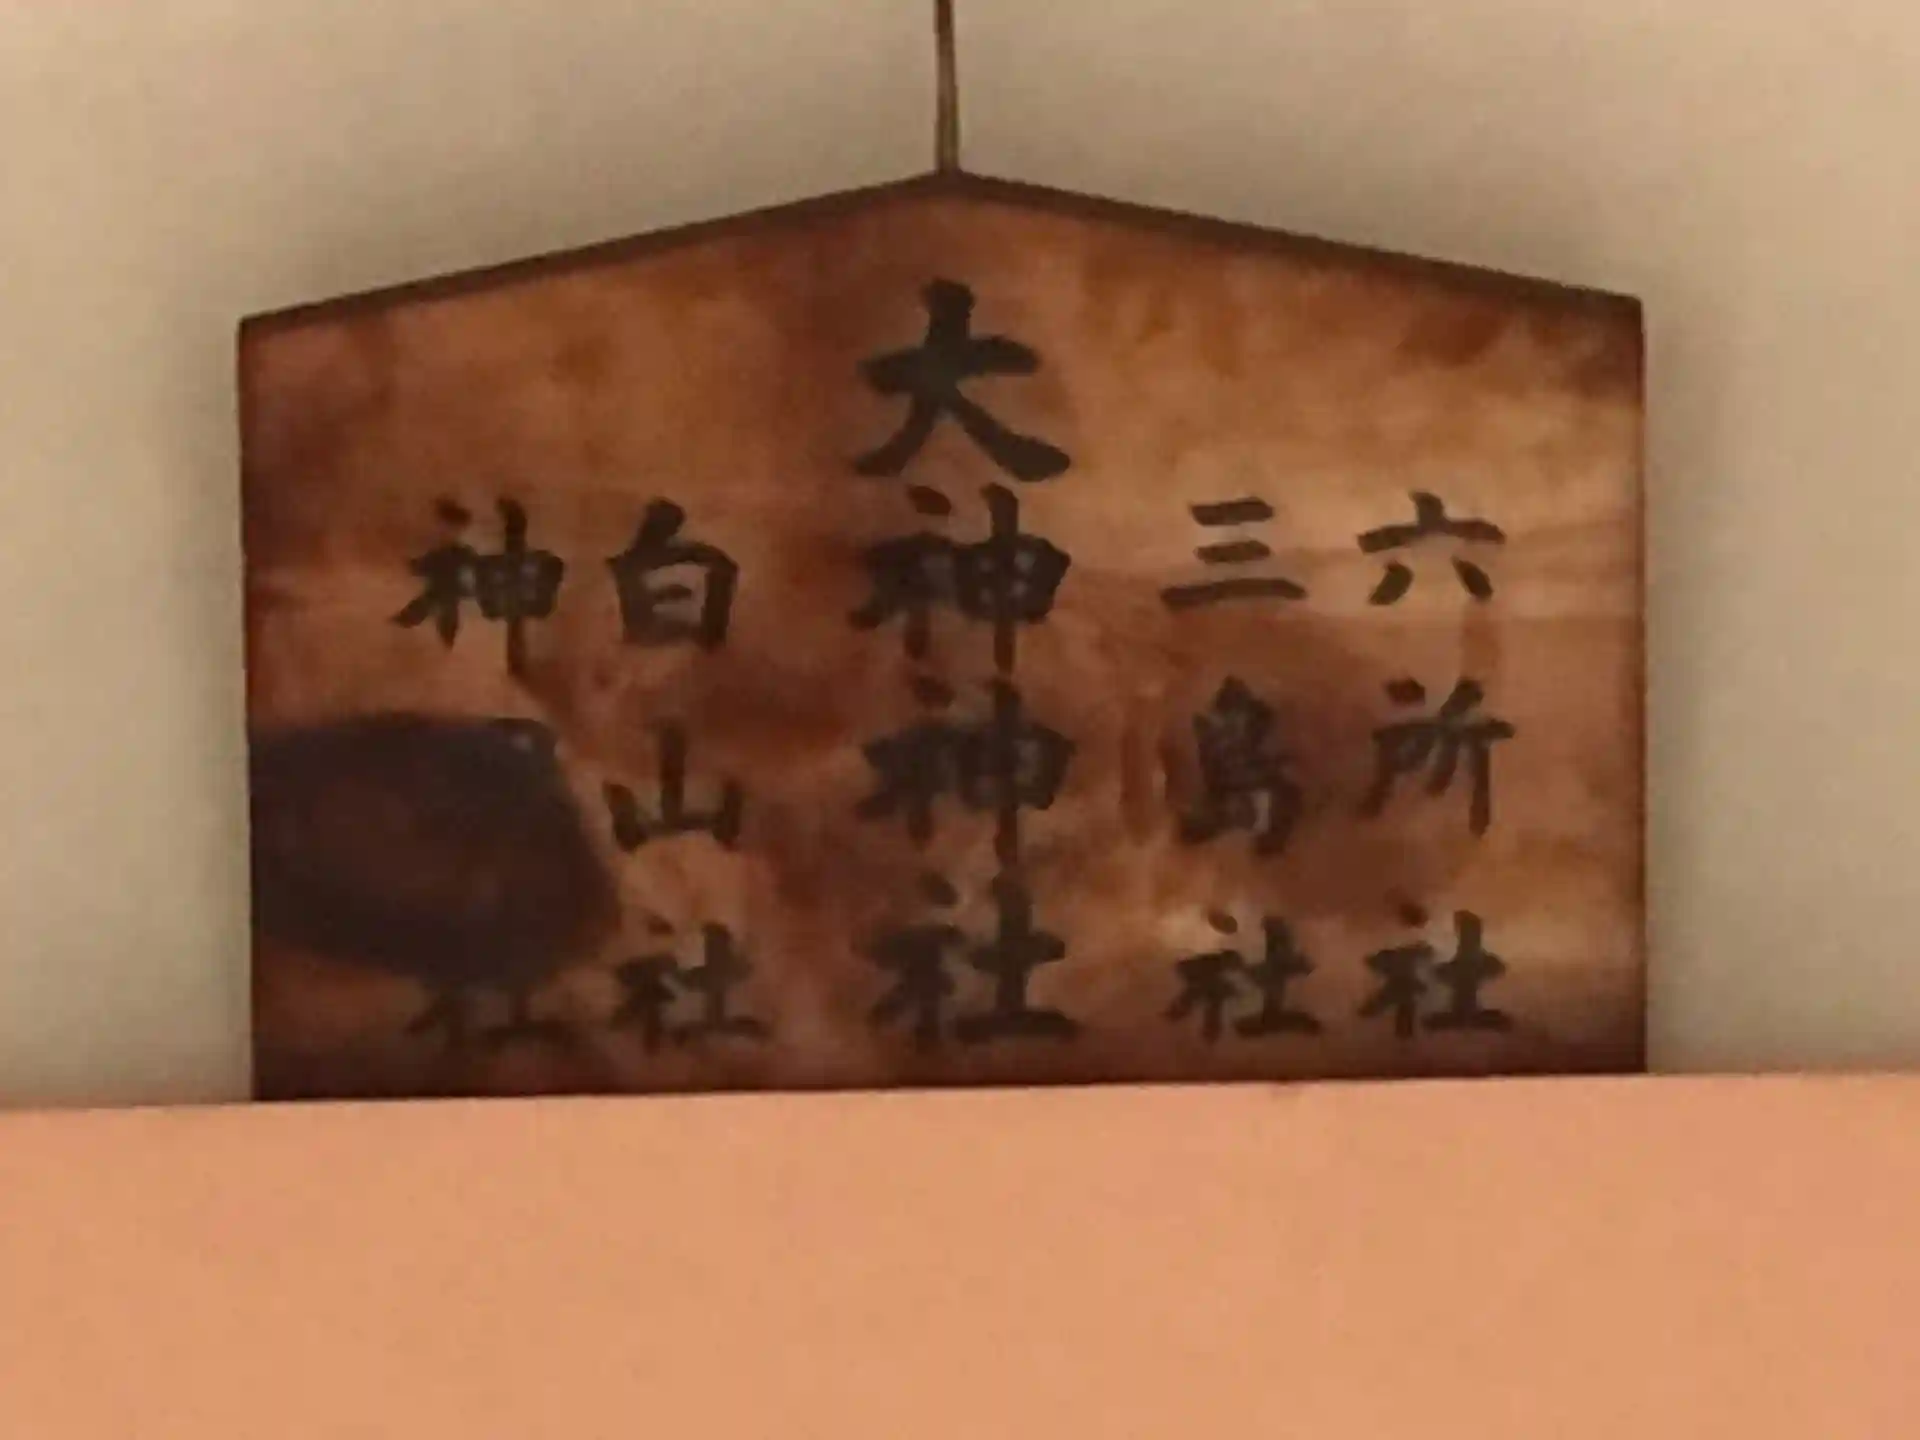 六所社
三島社
大神神社
白山社
神社